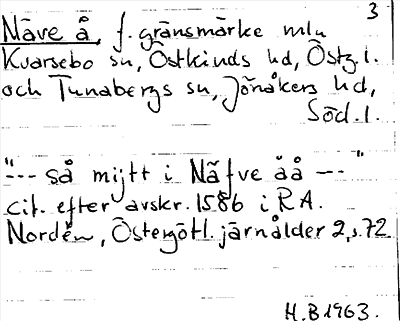 3
Näve å, f. gränsmärke mln
Kvarsebo sn, Östkinds hd, Östg.l.
och Tunabergs sn, Jönåkers hd,
Söd.l.
"--- så mijtt i Näfve åå ---"
cit. efter avskr. 1586 i RA.
Nordén, Östergötl. järnålder 2, s. 72
H.B 1963.